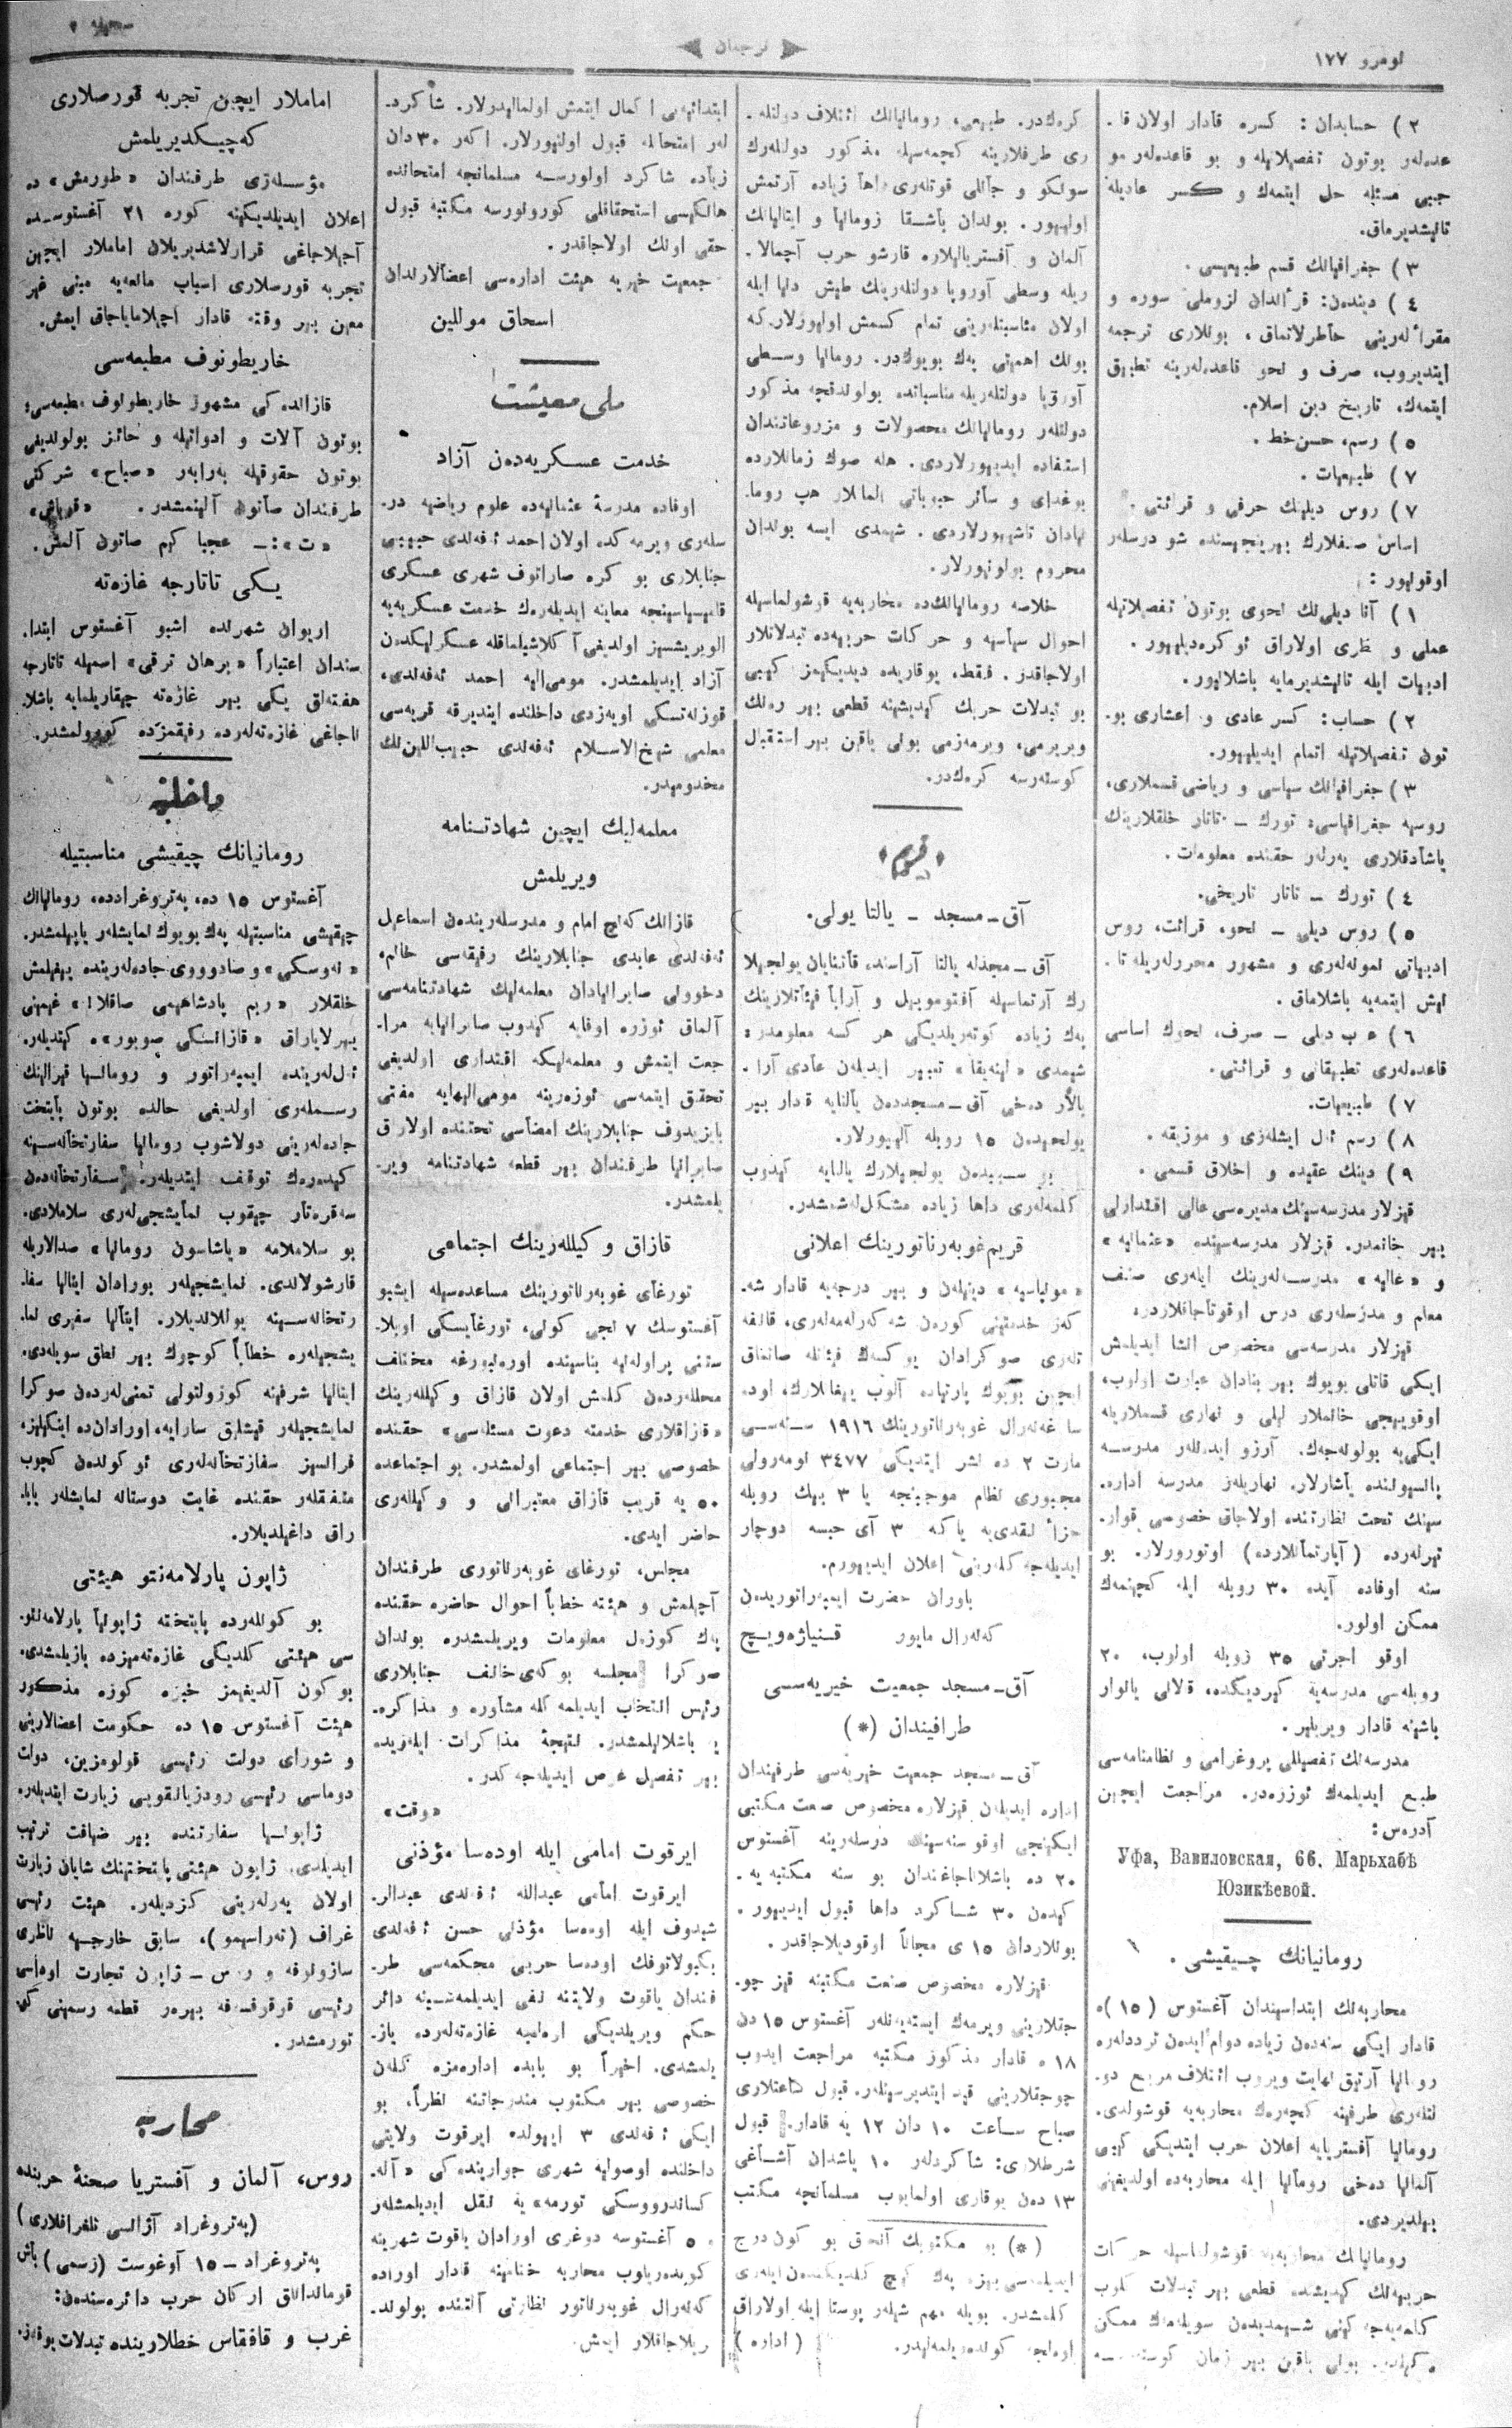 نومرو ١٧٧
ترجمان
صحیفه
٢) حسابدان: كسره قادار اولان قا-
عده‌لەر بوتون تفصیلاتیله و بو قاعده‌لەر مو
جبی مسئله حل ایتمەك و كسر عادیله
تانیشدیرماق.
٣) جغرافیانك قسم طبیعیسی.
٤) دیندەن: قرآندان لزوملی سوره و
ایتدیروب، صرف و نحو قاعده‌لەرینه تطبیق
ایتمەك، تاریخ دین اسلام.
٥) رسم، حسن خط.
٧) طبیعیات.
٧) روس دیلینك حرفی و قرائتی.
اساس صنفلارك بیرنجیسنده شو درسلەر
اوقونیور:
١) آنا دیلی‌نك نحوی بوتون تفصیلاتیله
عملی و نظری اولاراق ئوگره‌دیلیور.
ادبیات ایله تانیشدیرمایه باشلانیور.
٢) حساب: كسر عادی و اعشاری بو-
تون تفصیلاتیله اتمام ایدیلیور.
٣) جغرافیانك سیاسی و ریاضی قسملاری،
روسیه جغرافیاسی؛ تورك ــ تاتار خلقلارینك
یاشادقلاری یەرلەر حقنده معلومات.
٤) تورك ــ تاتار تاریخی.
٥) روس دیلی ــ نحو، قرائت، روس
ادبیاتی نمونه‌لەری و مشهور محررلەریله تا-
نیش ایتمەیه باشلاماق.
٦) عرب دیلی ــ صرف، نحوك اساسی
قاعده‌لەری تطبیقاتی و قرائتی.
٧) طبیعیات.
٨) رسم ئال ایشلەری و موزیقه.
٩) دینك عقیده و اخلاق قسمی.
قیزلار مدرسه‌سینك مدیره‌سی عالی اقتدارلی
بیر خانمدر. قیزلار مدرسه‌سینده «عثمانیه»
و «عالیه» مدرسه‌لەرینك ایلەری صنف
معلم و مدرسلەری درس اوقوتاجاقلاردر.
قیزلار مدرسه‌سی مخصوص انشا ایدیلمش
ایكی قاتلی بویوك بیر بنادان عبارت اولوب،
اوقوییجی خانملار لیلی و نهاری قسملاریله
ایكی‌یه بولونه‌جەك. آرزو ایدنلەر مدرسه
پانسیوننده یاشارلار. نهاریلەر مدرسه اداره-
سینك تحت نظارتنده اولاجاق خصوصی قوار-
تیرلەرده (آپارتمانلارده) اوتورورلار. بو
سنه اوفاده آیده ٣٠ روبله ایله كچینمەك
ممكن اولور.
اوقو اجرتی ٣٥ روبله اولوب، ٢٠
روبله‌سی مدرسه‌یه كیردیكده، قالانی یانوار
باشینه قادار ویریلیر.
مدرسه‌نك تفصیللی پروغرامی و نظامنامه‌سی
طبع ایدیلمەك ئوزره‌در. مراجعت ایچین
آدره‌س:
Уфа, Вавиловская, 66. Марьхабѣ
Юзикѣевой.
رومانیانك چیقیشی.
محاربه‌نك ابتداسیندان آغستوس (١٥)ه
قادار ایكی سنه‌دەن زیاده دوام ایدەن ترددلەره
رومانیا آرتیق نهایت ویروب ائتلاف مربع دو-
لتلەری طرفینه كچەرەك محاربه‌یه قوشولدی.
رومانیا آفستریایه اعلان حرب ایتدیكی كیبی
آلمانیا دەخی رومانیا ایله محاربه‌ده اولدیغینی
بیلدیردی.
رومانیانك محاربه‌یه قوشولماسیله حركات
حربیه‌نك كیدیشنده قطعی بیر تبدلات كلوب
كلمەیه‌جه‌كینی شیمدیدەن سویلەمەك ممكن
دكیلدر. بونی یاقین بیر زمان كوستەرسه
كرەكدر. طبیعی، رومانیانك ائتلاف دولتلە-
ری طرفلارینه كچمەسیله مذكور دولتلەرك
سونكو و جانلی قوتلەری داها زیاده آرتمش
اولیور. بوندان باشقا رومانیا و ایتالیانك
آلمان و آفستریالیلاره قارشو حرب آچمالا-
ریله وسطی آوروپا دولتلەرینك طیش دنیا ایله
اولان مناسبتلەرینی تمام كسمش اولیورلار كه
بونك اهمیتی پەك بویوكدر. رومانیا وسطی
آوروپا دولتلەریله مناسباتده بولوندقجه مذكور
دولتلەر رومانیانك محصولات و مزروعاتندان
استفاده ایدیورلاردی. هله صوك زمانلارده
بوغدای و سائر حبوباتی آلمانلار هپ روما-
نیادان تاشیورلاردی. شیمدی ایسه بوندان
محروم بولونیورلار.
خلاصه رومانیانك‌ده محاربه‌یه قوشولماسیله
احوال سیاسیه و حركات حربیه‌ده تبدلاتلار
اولاجاقدر. فقط، یوقاریده دیدیكیمز كیبی
بو تبدلات حربك كیدیشینه قطعی بیر رەنك
ویریرمی، ویرمەزمی بونی یاقین بیر استقبال
كوستەرسه كرەكدر.
قریم
آق-مسجد - یالتا یولی.
آق-مسجدله یالتا آراسنده قاتنایان یولجیلا
رك آرتماسیله آفتوموبیل و آرابا فیئاتلارینك
پەك زیاده كوتەریلدیكی هر كسه معلومدر؛
شیمدی «لینەیقا» تعبیر ایدیلەن عادی آرا-
بالار دەخی آق-مسجددەن یالتایه قدار بیر
یولجیدەن ١٥ روبله آلیورلار.
بو سببدەن یولجیلارك یالتایه كیدوب
كلمەلەری داها زیاده مشكل‌لەشمشدر.
قریم غوبه‌رناتورینك اعلانی
«مولیاسیه» دینیلەن و بیر درجه‌یه قادار شه-
كەر خدمتینی كورەن شەكەرلەمەلەری، قانفه
تلەری صوكرادان یوكسەك فیئاتله صاتماق
ایچین بویوك پارتیاده آلوب ییغانلارك، اوده
سا غەنەرال غوبەرناتورینك ١٩١٦ سنەسی
مارت ٢ ده نشر ایتدیكی ٣٤٧٧ نومرولی
مجبوری نظام موجبنجه یا ٣ بیك روبله
جزاٴ نقدی‌یه یاكه ٣ آی حبسه دوچار
ایدیله‌جه‌كلەرینی اعلان ایدیورم.
یاوران حضرت ایمپەراتوریدەن
كەنەرال مایور قنیاژه‌ویچ
آق-مسجد جمعیت خیریه‌سی
طرافیندان (*)
آق-مسجد جمعیت خیریه‌سی طرفیندان
اداره ایدیلەن قیزلاره مخصوص صنعت مكتبی
ایكینجی اوقو سنه‌سینك درسلەرینه آغستوس
٢٠ ده باشلاناجاغندان بو سنه مكتبه یه-
كیدەن ٣٠ شاكرد داها قبول ایدیور.
بونلاردان ١٥ ی مجاناً اوقودیلاجاقدر.
قیزلاره مخصوص صنعت مكتبنه قیز چو-
جقلارینی ویرمەك ایستەیەنلەر آغستوس ١٥ دن
١٨ ه قادار مذكور مكتبه مراجعت ایدوب
چوجقلارینی قید ایتدیرسینلەر. قبول ساعتلاری
صباح ساعت ١٠ دان ١٢ یه قادار. قبول
شرطلاری: شاكردلەر ١٠ یاشدان آشاغی
١٣ دەن یوقاری اولمایوب مسلمانچه مكتب
(*) بو مكتوبك آنجق بو كون درج
ایدیلمەسی بیزه پەك كیچ كلدیكیندەن ایلەری
كلمشدر. بویله مهم شیلەر پوستا ایله اولاراق
اوەلجه كوندەریلمەلیدر. (اداره)
ابتدائیه‌یی اكمال ایتمش اولمالیدرلار. شاكرد-
لەر امتحانله قبول اولنیورلار. اكەر ٣٠ دان
زیاده شاكرد اولورسه مسلمانجه امتحانده
هانكیسی استحقاقلی كورونورسه مكتبه قبول
حقی اونك اولاجاقدر.
جمعیت خیریه هیئت اداره‌سی اعضالارندان
اسحاق موللین
ملی معیشت
خدمت عسكریه‌دەن آزاد
اوفاده مدرسهٔ عثمانیه‌ده علوم ریاضیه در-
سلەری ویرمەكده اولان احمد ئەفەندی حبیبی
جنابلاری بو كره صاراتوف شهری عسكری
قامیسیاسینجه معاینه ایدیلەرەك خدمت عسكریه‌یه
الویریشسیز اولدیغی آكلاشیلماقله عسكرلیكدەن
آزاد ایدیلمشدر. مومی‌الیه احمد ئەفەندی،
قوزنەتسكی اویەزدی داخلنده ایندیرقه قریه‌سی
معلمی شیخ‌الاسلام ئەفەندی حبیب‌اللین‌نك
مخدومیدر.
معلمه‌لیك ایچین شهادتنامه
ویریلمش
قازانك كەنچ امام و مدرسلەریندەن اسماعیل
ئەفەندی عابدی جنابلارینك رفیقه‌سی خانم،
دخوونی صابرانیادان معلمه‌لیك شهادتنامه‌سی
آلماق ئوزره اوفایه كیدوب صابرانیایه مرا-
جعت ایتمش و معلمه‌لیكه اقتداری اولدیغی
تحقق ایتمەسی ئوزەرینه مومی‌الیهایه مفتی
بایزیدوف جنابلارینك امضاسی تحتنده اولارق
صابرانیا طرفندان بیر قطعه شهادتنامه ویر-
یلمشدر.
قازاق وكیللەرینك اجتماعی
تورغای غوبەرناتورینك مساعده‌سیله ایشبو
آغستوسك ٧ نجی كونی، تورغایسكی اوبلا-
ستنی پراولەنیه بناسینده اورەنبورغه مختلف
محللەردەن كلمش اولان قازاق وكیللەرینك
«قازاقلاری خدمته دعوت مسئله‌سی» حقنده
خصوصی بیر اجتماعی اولمشدر. بو اجتماعده
٥٠ یه قریب قازاق معتبرانی و وكیللەری
حاضر ایدی.
مجلس، تورغای غوبەرناتوری طرفندان
آچیلمش و هیئته خطاباً احوال حاضره حقنده
پەك كوزەل معلومات ویریلمشدر. بوندان
صوكرا مجلسه بوكەی‌خانف جنابلاری
رئیس انتخاب ایدیلمەكله مشاوره و مذاكره-
یه باشلانیلمشدر. نتیجهٔ مذاكرات ایلەریده
بیر تفصیل عرض ایدیله‌جەكدر.
«وقت»
ایرقوت امامی ایله اوده‌سا مؤذنی
ایرقوت امامی عبدالله ئەفەندی عبدالر-
شیدوف ایله اوده‌سا مؤذنی حسن ئەفەندی
بیكبولاتوفك اوده‌سا حربی محكمه‌سی طر-
فندان یاقوت ولایتنه نفی ایدیلمەسینه دائر
حكم ویریلدیكی ارەلمیه غازەته‌لەرده یاز-
یلمشدی. اخیراً بو بابده اداره‌مزه كلەن
خصوصی بیر مكتوب مندرجاتنه نظراً، بو
ایكی ئەفەندی ٣ اییولده ایرقوت ولایتی
داخلنده اوصولیه شهری جوارینده‌كی «آلە-
كساندرووسكی تورمه» یه نقل ایدیلمشلەر
٥ آغستوسه دوغری اورادان یاقوت شهرینه
كوندەریلوب محاربه ختامینه قادار اوراده
كەنەرال غوبەرناتور نظارتی آلتنده بولوند-
ریلاجاقلار ایمش.
اماملار ایچین تجربه قورصلاری
كەچیكدیریلمش
مؤسسلەری طرفندان «طورمش» ده
اعلان ایدیلدیكینه كوره ٢١ آغستوسده
آچیلاجاغی قرارلاشدیریلان اماملار ایچین
تجربه قورصلاری اسباب مانعه‌یه مبنی غیر
معین بیر وقته قادار آچیلمایاجاق ایمش.
خاریطونوف مطبعه‌سی
قازانده‌كی مشهور خاریطونوف مطبعه‌سی؛
بوتون آلات و ادواتیله و حائز بولوندیغی
بوتون حقوقیله بەرابەر «صباح» شركتی
طرفندان صاتون آلینمشدر. «قویاش»
«ت»:ــ عجبا كیم صاتون آلمش.
یكی تاتارجه غازەته
اریوان شهرنده اشبو آغستوس ابتدا-
سندان اعتباراً «برهان ترقی» اسمیله تاتارجه
هفته‌لق یكی بیر غازەته چیقاریلمایه باشلا
ناجاغی غازەته‌لەرده رفیقمزده كورولمشدر.
داخلیه
رومانیانك چیقیشی مناسبتیله
آغستوس ١٥ ده، پەتروغرادده، رومانیانك
چیقیشی مناسبتیله پەك بویوك نمایشلەر یاپیلمشدر.
«نەوسكی» و صادووی جاده‌لەرینده ییغیلمش
خلقلار «ربم پادشاهیمی صاقلا!» غیمنی
ییرلایاراق «قازانسكی صوبور» ه كیتدیلەر.
ئال‌لەرینده ایمپەراتور و رومانیا قیرالینك
رسملەری اولدیغی حالده بوتون پایتخت
جاده‌لەرینی دولاشوب رومانیا سفارتخانه‌سینه
كیدەرەك توقف ایتدیلەر. سفارتخانه‌دەن
سەقرەتار چیقوب نمایشجی‌لەری سلاملادی.
بو سلاملامه «یاشاسون رومانیا» صدالاریله
قارشولاندی. نمایشجیلەر بورادان ایتالیا سفا-
رتخانه‌سینه یوللاندیلار. ایتالیا سفیری نما-
یشجیلەره خطاباً كوچوك بیر نطق سویلەدی.
ایتالیا شرفینه كوزولتولی تمنی‌لەردەن صوكرا
نمایشجیلەر قیشلق سارایه، اورادان‌ده اینكیلیز،
فرانسیز سفارتخانه‌لەری ئوكوندەن كچوب
متفقلەر حقنده غایت دوستانه نمایشلەر یاپا-
راق داغیلدیلار.
ژاپون پارلامەنتو هیئتی
بو كونلەرده پایتخته ژاپونیا پارلامەنتو-
سی هیئتی كلدیكی غازەته‌میزده یازیلمشدی.
بوكون آلدیغیمز خبره كوره مذكور
هیئت آغستوس ١٥ ده حكومت اعضالارینی
و شورای دولت رئیسی قولومزین، دولت
دوماسی رئیسی رودزیانقویی زیارت ایتدیلەر.
ژاپونیا سفارتنده بیر ضیافت ترتیب
ایدیلدی. ژاپون هیئتی پایتختینك شایان زیارت
اولان یەرلەرینی كزدیلەر. هیئت رئیسی
غراف (تەراسیمو)، سابق خارجیه ناظری
سازونوفه و روس-ژاپون تجارت اوداسی
رئیسی قوقوفسقه بیرەر قطعه رسمینی كو-
تورمشدر.
محاربه
روس، آلمان و آفستریا صحنهٔ حربنده
(پەتروغراد آژانسی تلغرافلاری)
پەتروغراد - ١٥ آوغوست (رسمی) باش
قوماندانلق اركان حرب دائره‌سندەن:
غرب و قافقاس خطلارینده تبدلات یوقدر.